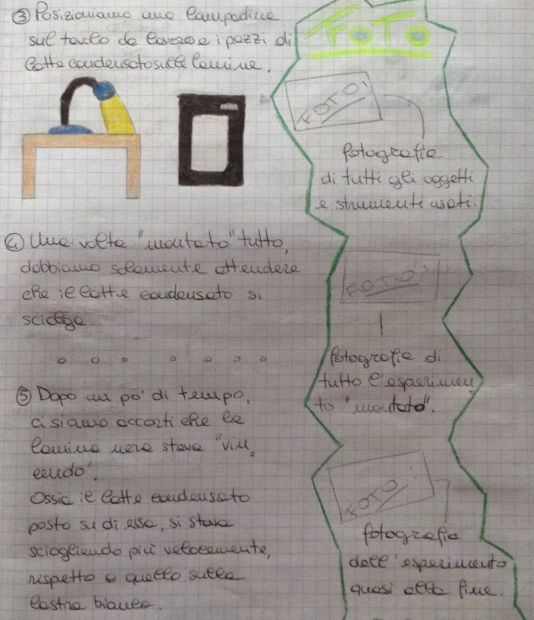 ③ Posizioniamo una lampadina
sul tavolo da lavoro e i pezzi di
latte condensato sulle lamine.
④ Una volta "montato" tutto,
dobbiamo solamente attendere
che il latte condensato si
sciolga.
⑤ Dopo un po' di tempo,
ci siamo accorti che la
lamina nera stava "vin
cendo".
Ossia il latte condensato
posto su di essa, si stava
sciogliendo più velocemente,
rispetto a quello sulla
lastra bianca.
FOTO
FOTO!
fotografia
di tutti gli oggetti
e strumenti usati.
FOTO!
fotografia di
tutto l'esperimen
to "montato".
FOTO!
fotografia
dell'esperimento
quasi alla fine.